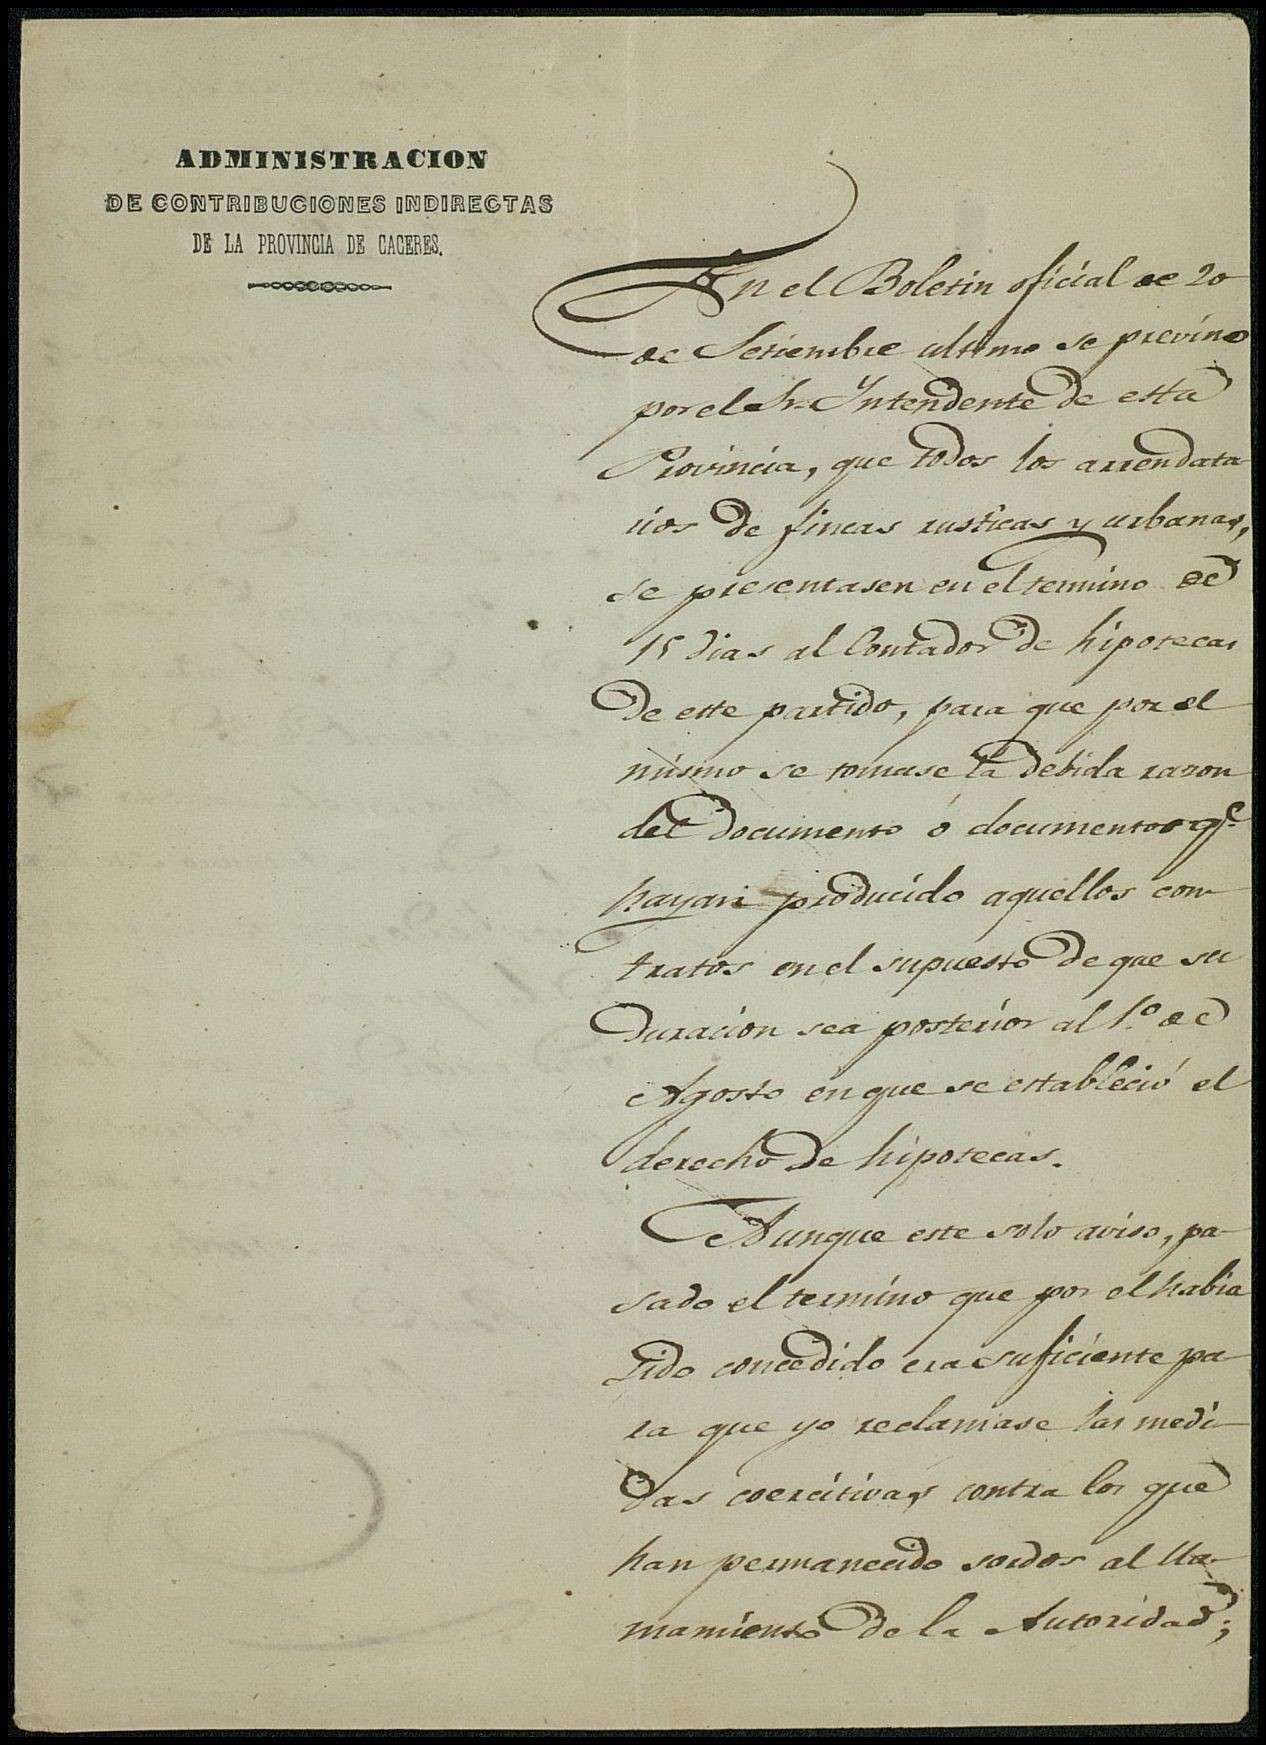 ADMINISTRACION
DE CONTRIBUCIONES INDIRECTAS
DE LA PROVINCIA DE CACERES.
En el Boletin oficial de 20
de Setiembre ultimo se previno
por el Sr. Yntendente de esta
Provincia, que todos los arrendata
rios de fincas rusticas y urbanas,
se presentasen en el termino de
15 dias al Contador de hipotecas
de este partido, para que por el
mismo se tomase la debida razon
del documento ó documentos qe.
hayan producido aquellos con-
tratos en el supuesto de que su
duracion sea posterior al 1.o de
Agosto en que se estableció el
derecho de hipotecas.
Aunque este solo aviso, pa-
sado el termino que por el habia
sido concedido era suficiente pa-
ra que yo reclamase las medi-
das coercitivas contra los que
han permanecido sordos al lla-
mamiento de la Autoridad;